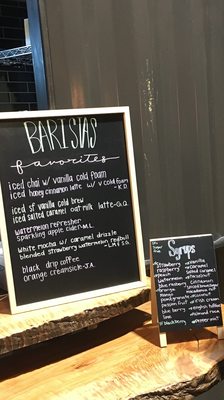 BARISTAS
favorites
iced chai w/ vanilla cold foam
iced honey cinnamon latte w/ v cold foam
-K.D.
iced sf vanilla cold brew
iced salted caramel oat milk latte-G.G.
watermelon refresher
sparkling apple cider-M.L.
white mocha w/ caramel drizzle
blended strawberry watermelon redbull
black drip coffee
orange creamsicle-J.A.
Syrups
Strawberry
raspberry
peach
watermelon
blue raspberry
orange
mango
pomegranate
passion fruit
blue berry
lime
blackberry
vanilla
caramel
salted caramel
cinnamon
irish cream
english toffee
almond